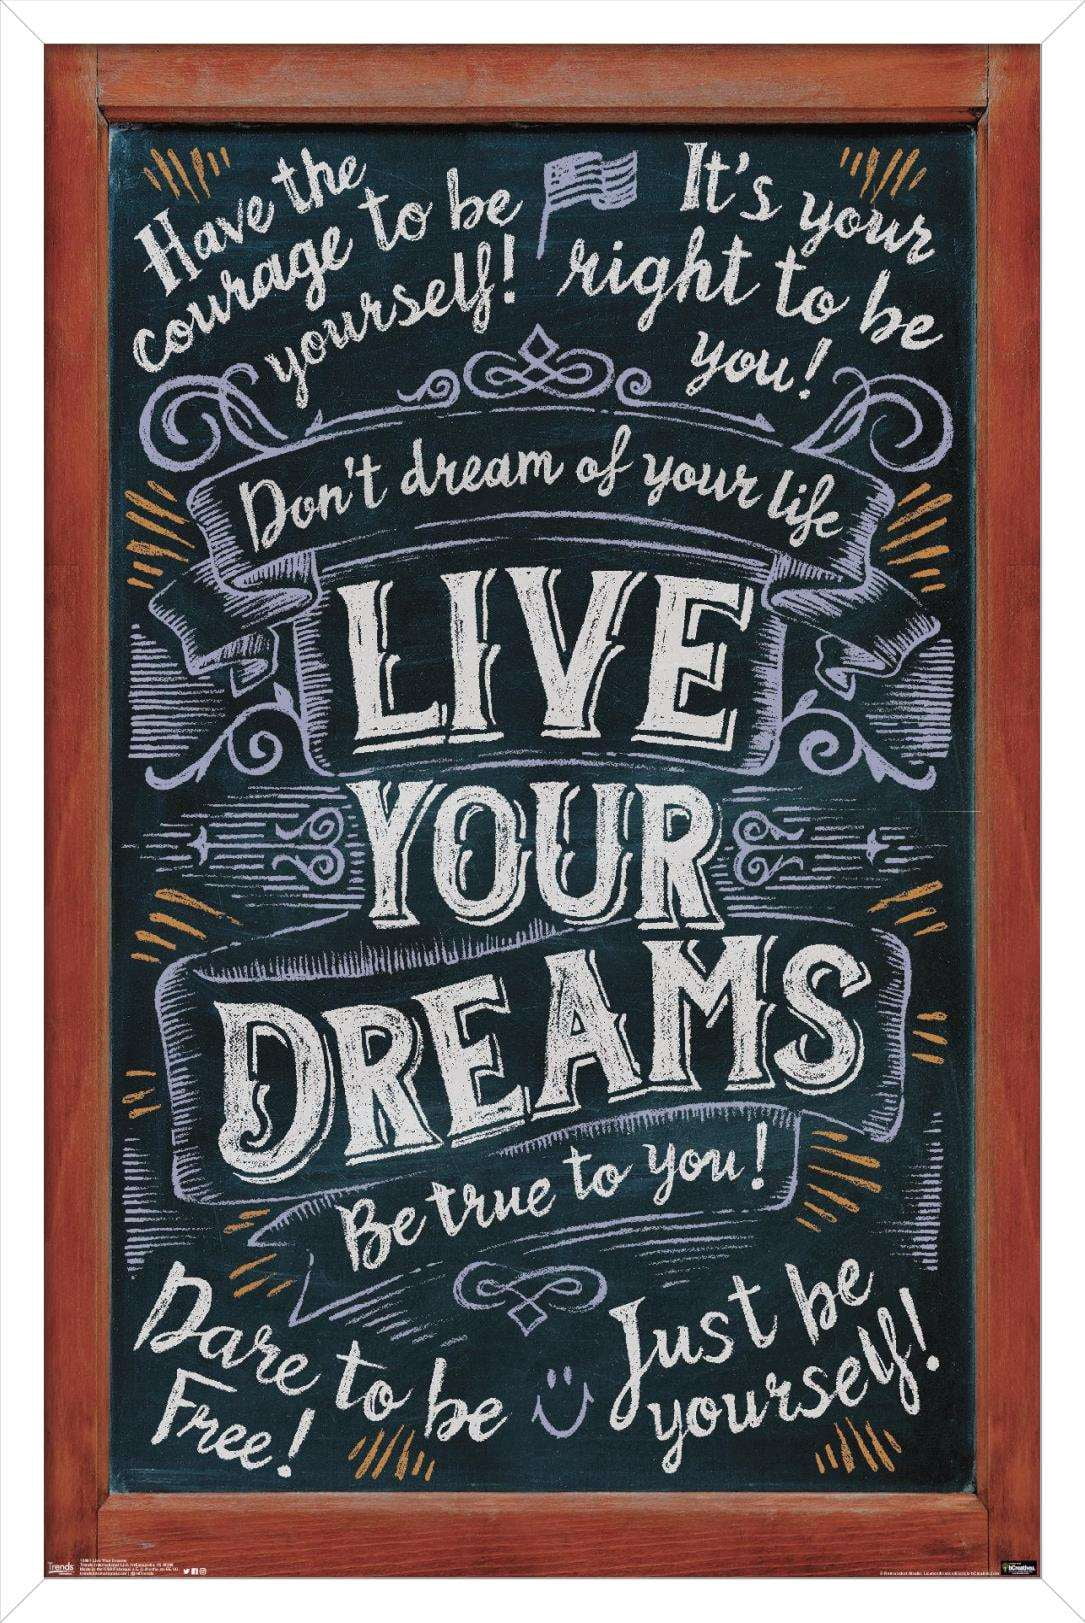 Have the
courage to be
yourself!
It's your
right to be
you!
Don't dream of your life
LIVE
YOUR
DREAMS
Be true to you!
Dare to be
Free!
Just be
yourself!
Trends